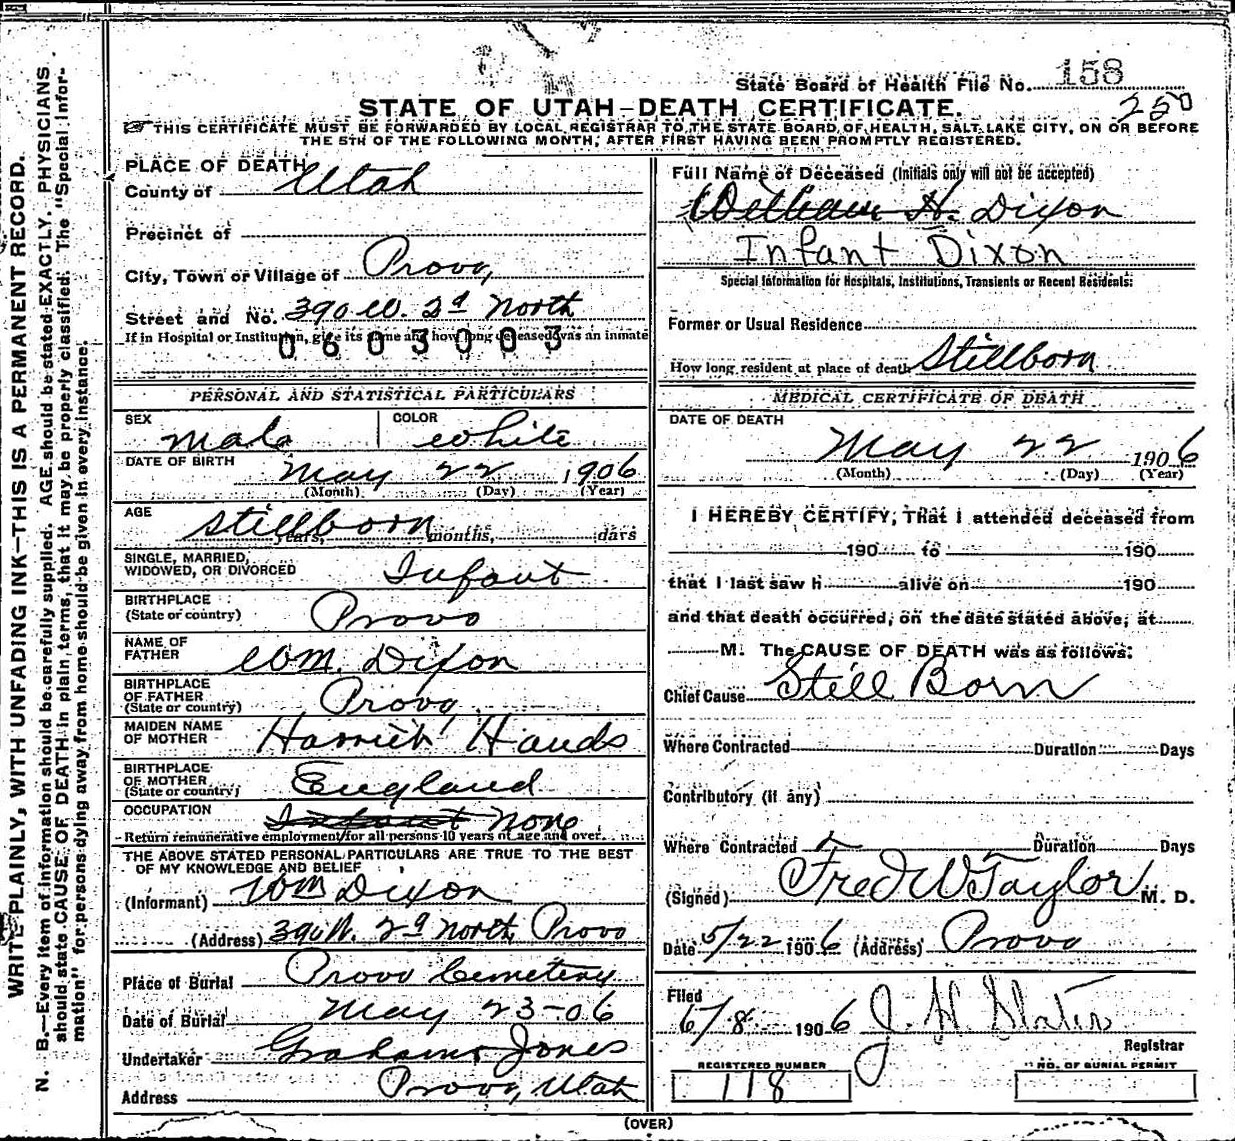 State Board of Health File No. 158
250
STATE OF UTAH-DEATH CERTIFICATE.
THIS CERTIFICATE MUST BE FORWARDED BY LOCAL REGISTRAR TO THE STATE BOARD OF HEALTH, SALT LAKE CITY, ON OR BEFORE
THE 5TH OF THE FOLLOWING MONTH, AFTER FIRST HAVING BEEN PROMPTLY REGISTERED.
WRITE PLAINLY, WITH UNFADING INK—THIS IS A PERMANENT RECORD.
N. B.—Every item of information should be carefully supplied. AGE should be stated EXACTLY. PHYSICIANS
should state CAUSE OF DEATH in plain terms, that it may be properly classified. The "Special Infor-
mation" for persons dying away from home should be given in every instance.
PLACE OF DEATH
County of Utah
Precinct of
City, Town or Village of Provo,
Street and No. 390 W. 2d North
If in Hospital or Institution, give its name and how long deceased was an inmate
0603003
PERSONAL AND STATISTICAL PARTICULARS
SEX Male COLOR White
DATE OF BIRTH May 22 1906
(Month) (Day) (Year)
AGE Stillborn
years, months, days
SINGLE, MARRIED,
WIDOWED, OR DIVORCED Infant
BIRTHPLACE
(State or country) Provo
NAME OF
FATHER Wm. Dixon
BIRTHPLACE
OF FATHER
(State or country) Provo
MAIDEN NAME
OF MOTHER Hands
BIRTHPLACE
OF MOTHER
(State or country) England
OCCUPATION Infant None
Return remunerative employment for all persons 10 years of age and over.
THE ABOVE STATED PERSONAL PARTICULARS ARE TRUE TO THE BEST
OF MY KNOWLEDGE AND BELIEF
(Informant) Wm Dixon
(Address) 390 W. 2d North Provo
Place of Burial Provo Cemetery
Date of Burial May 23-06
Undertaker Graham Jones
Address Provo, Utah
Full Name of Deceased (Initials only will not be accepted)
William H. Dixon
Infant Dixon
Special Information for Hospitals, Institutions, Transients or Recent Residents:
Former or Usual Residence
How long resident at place of death Stillborn
MEDICAL CERTIFICATE OF DEATH
DATE OF DEATH
May 22 1906
(Month) (Day) (Year)
I HEREBY CERTIFY, That I attended deceased from
190 to 190
that I last saw h alive on 190
and that death occurred, on the date stated above, at
M. The CAUSE OF DEATH was as follows:
Chief Cause Still Born
Where Contracted Duration Days
Contributory (if any)
Where Contracted Duration Days
(Signed) Fred W Taylor M. D.
Date 5/22 1906 (Address) Provo
Filed
6/8 1906 J. H. Slater
Registrar
REGISTERED NUMBER
118
NO. OF BURIAL PERMIT
(OVER)